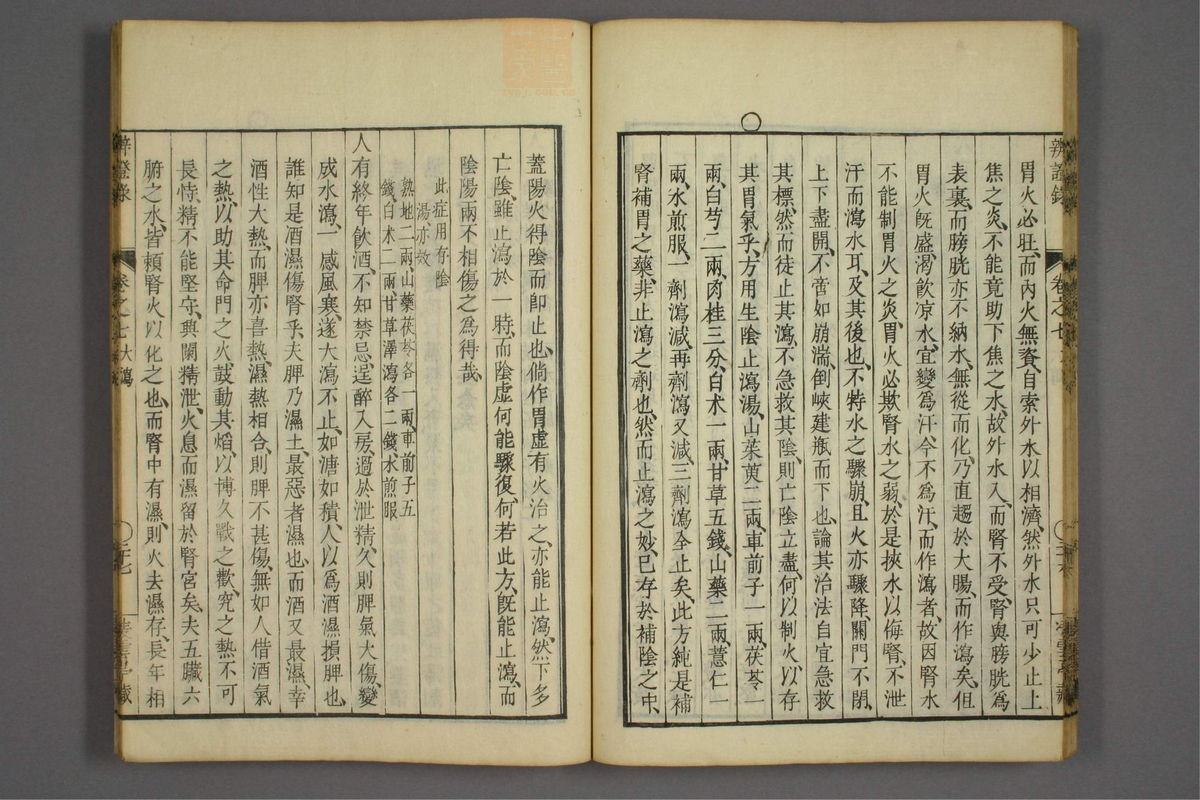 辨證錄
卷之七
胃火必旺、而內火無資、自索外水以相濟、然外水只可少止上
焦之炎、不能竟助下焦之水、故外水入、而腎不受、腎與膀胱爲
表裏、而膀胱亦不納水、無從而化、乃直趨於大腸、而作瀉矣、但
胃火旣盛、渴飲凉水、宜變爲汗、今不爲汗、而作瀉者、故因腎水
不能制胃火之炎、胃火必欺腎水之弱、於是挾水以侮腎、不泄
汗而瀉水耳、及其後也、不特水之驟崩、且火亦驟降、關門不閉、
上下盡開、不啻如崩湍、倒峽建瓶而下也、論其治法、自宜急救
其標、然而徒止其瀉、不急救其陰、則亡陰立盡、何以制火、以存
其胃氣乎、方用生陰止瀉湯、山茱萸二兩、車前子一兩、茯苓一
兩、白芍二兩、肉桂三分、白术一兩、甘草五錢、山藥二兩、薏仁一
兩、水煎服、一劑瀉減、再劑瀉又減、三劑瀉全止矣、此方純是補
腎補胃之藥、非止瀉之劑也、然而止瀉之妙、已存於補陰之中、
蓋陽火得陰而卽止也、倘作胃虛有火治之、亦能止瀉、然下多
亡陰、雖止瀉於一時、而陰虛何能驟復、何若此方、旣能止瀉、而
陰陽兩不相傷之爲得哉、
此症用存陰
湯亦效
熟地二兩、山藥茯苓各一兩、車前子五
錢、白术二兩、甘草澤瀉各二錢、水煎服
人有終年飲酒、不知禁忌、逞醉入房、過於泄精、久則脾氣大傷、變
成水瀉、一感風寒、遂大瀉不止、如溏如積、人以爲酒濕損脾也、
誰知是酒濕傷腎乎、夫脾乃濕土、最惡者濕也、而酒又最濕、幸
酒性大熱、而脾亦喜熱、濕熱相合、則脾不甚傷、無如人借酒氣
之熱、以助其命門之火、鼓動其焰、以博久戰之歡、究之熱不可
長恃、精不能堅守、興闌精泄、火息而濕留於腎宮矣、夫五臟六
腑之水、皆賴腎火以化之也、而腎中有濕、則火去濕存、長年相
辨證錄
卷之七 大瀉
二十七